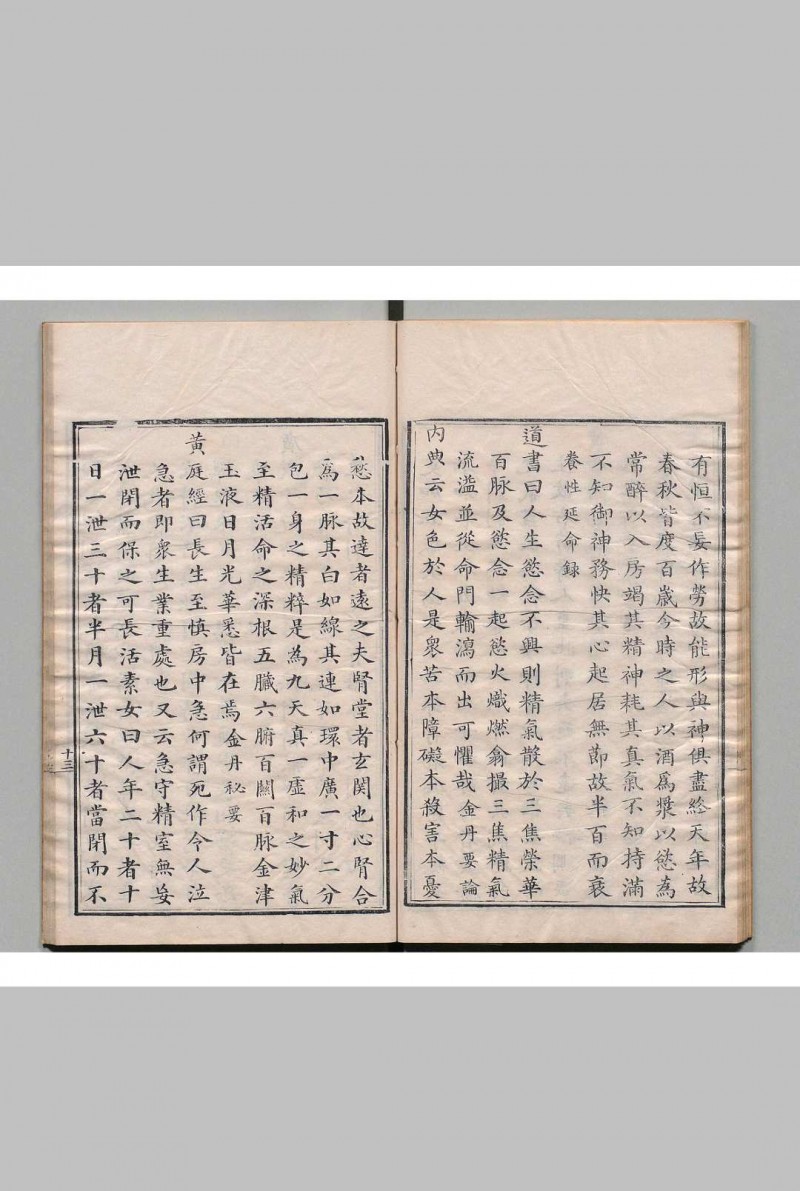 有恒不妄作勞故能形與神俱盡終天年故
春秋皆度百歲今時之人以酒爲漿以慾爲
常醉以入房竭其精神耗其真氣不知持滿
不知御神務快其心起居無節故半百而衰
養性延命録
道書曰人生慾念不興則精氣散於三焦榮華
百脉及慾念一起慾火熾燃翕撮三焦精氣
流溢並從命門輸瀉而出可懼哉金丹要論
内典云女色於人是衆苦本障礙本殺害本憂
愁本故達者遠之夫腎堂者玄関也心腎合
爲一脉其白如線其連如環中廣一寸二分
包一身之精粹是為九天真一虛和之妙氣
至精活命之深根五臟六腑百關百脉金津
玉液日月光華悉皆在焉金丹秘要
黄庭經曰長生至慎房中急何謂死作令人泣
急者即衆生業重處也又云急守精室無妄
泄閉而保之可長活素女曰人年二十者十
日一泄三十者半月一泄六十者當閉而不
十三